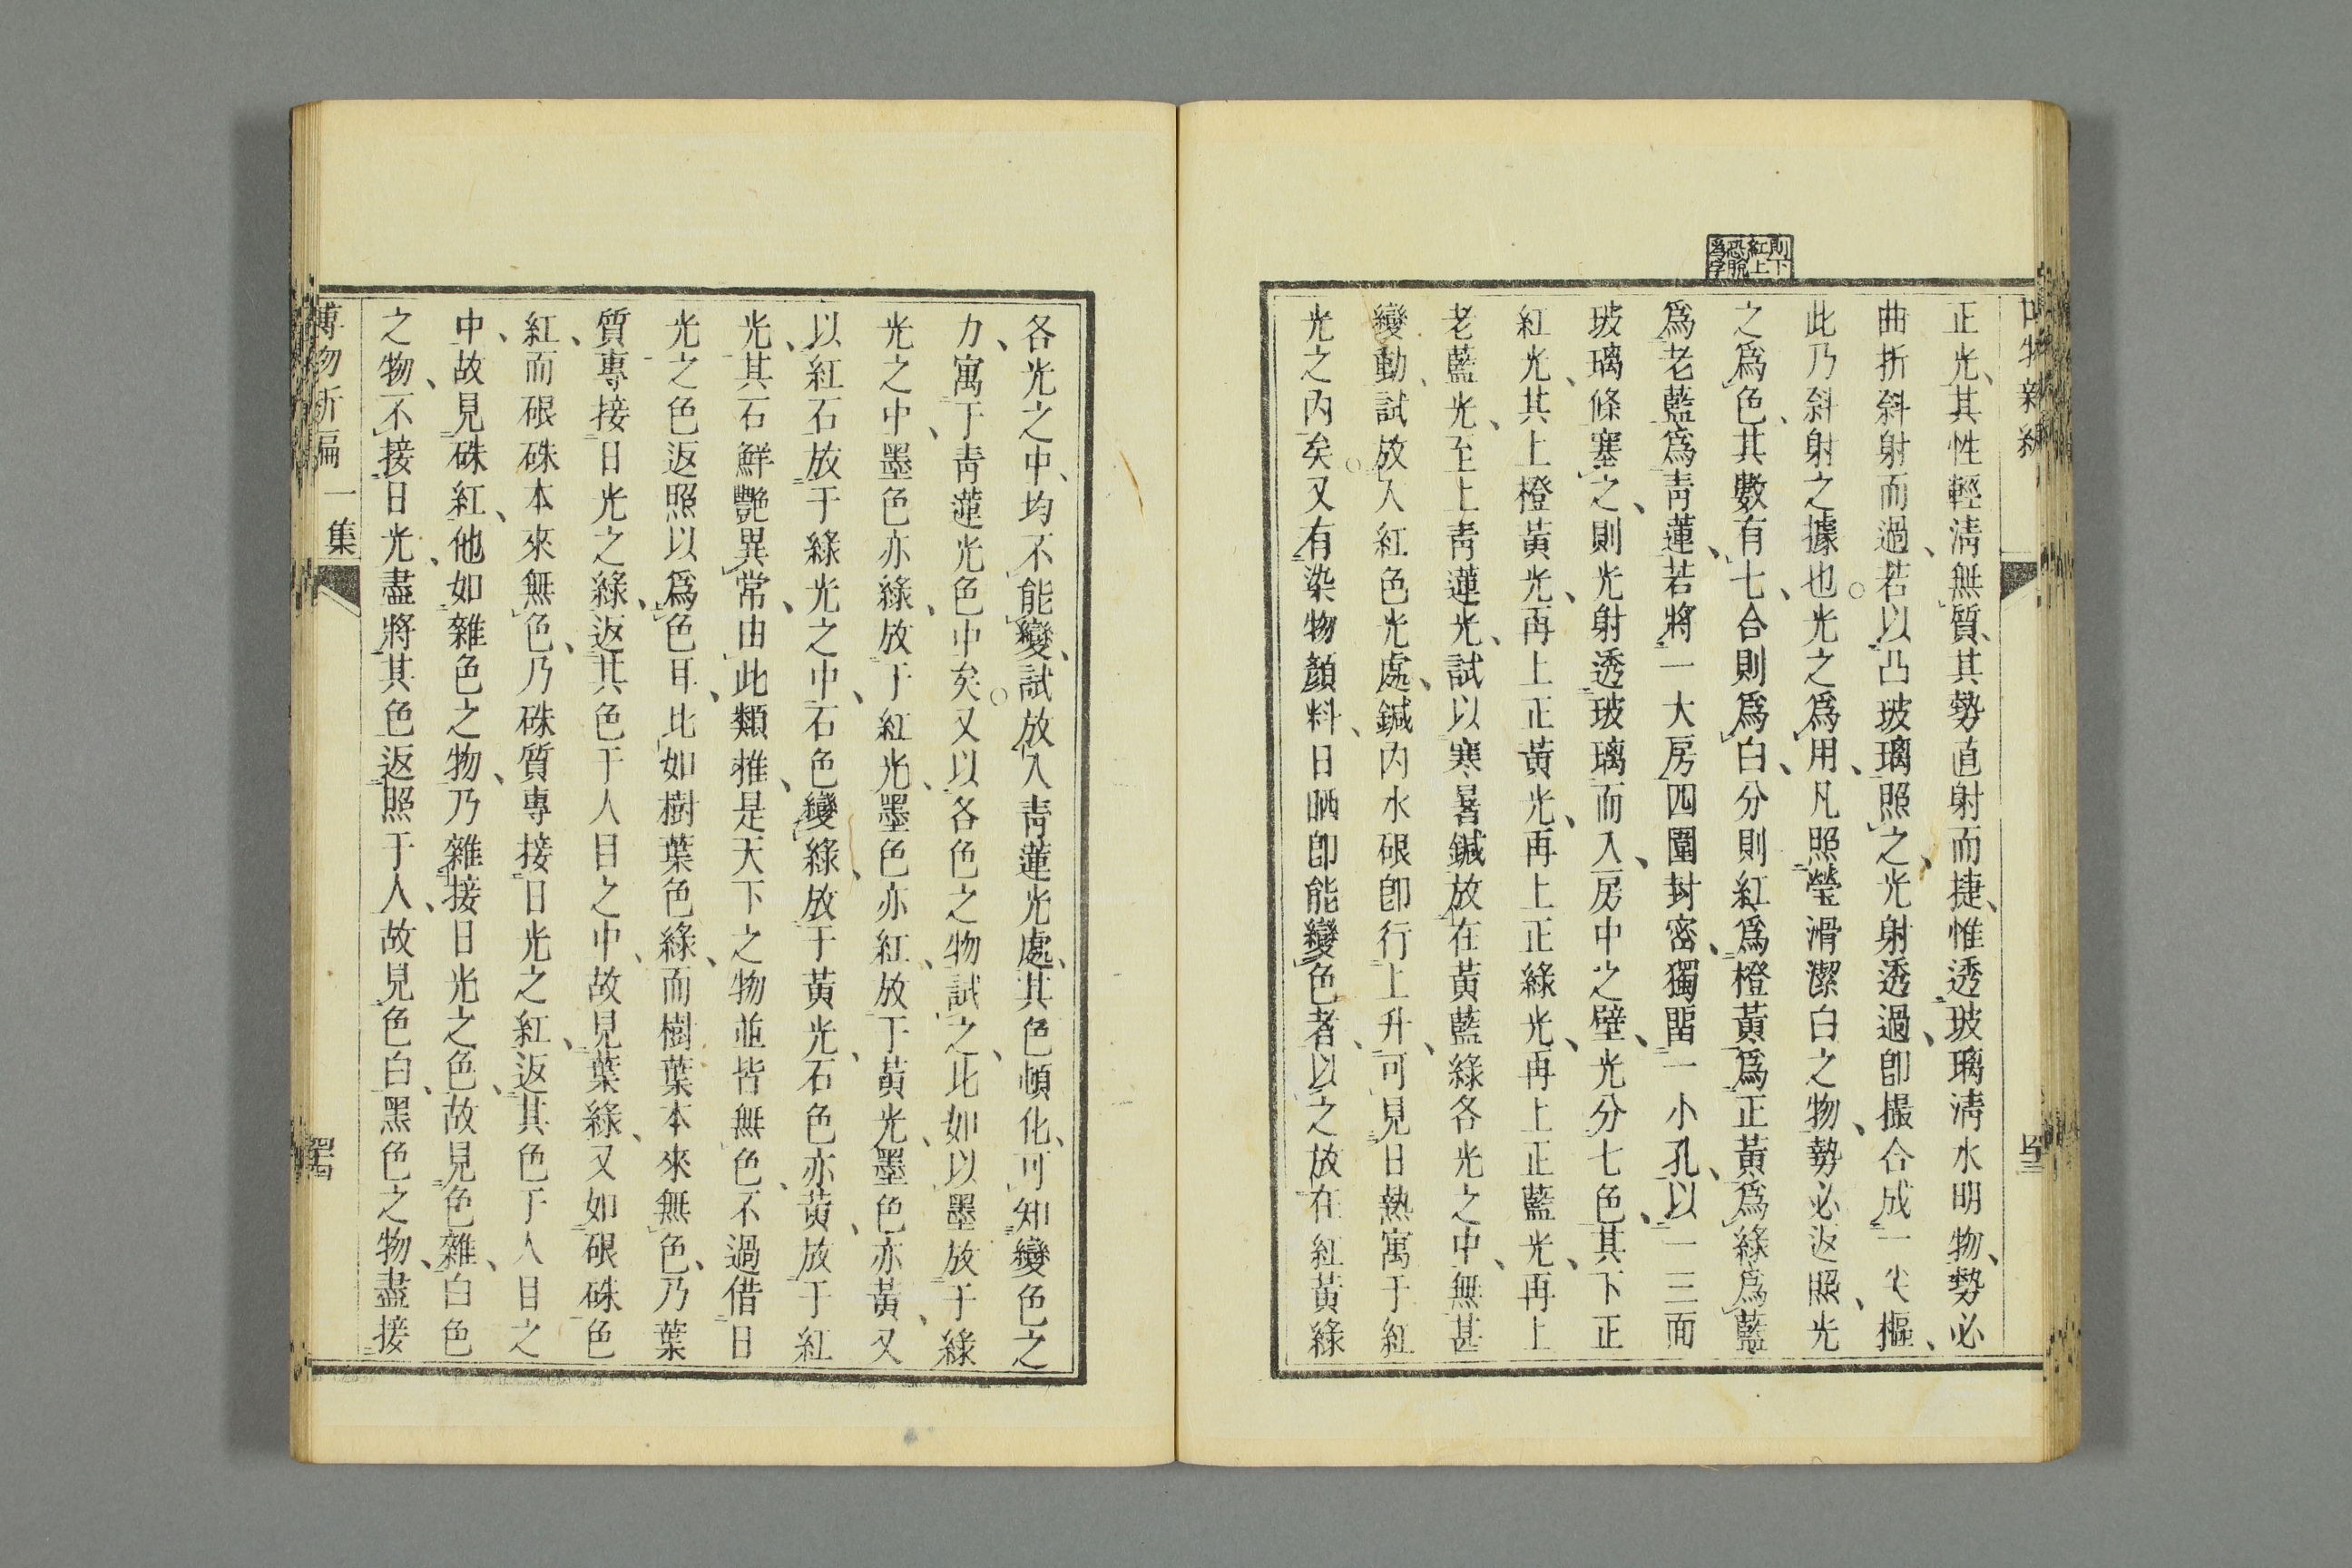 則下
紅上
恐脫
爲字
正光、其性輕淸無質、其勢直射而捷、惟透玻璃淸水明物、勢必
曲折斜射而過、若以凸玻璃照之、光射透過、卽撮合成一尖樞、
此乃斜射之據也○光之爲用、凡照瑩滑潔白之物、勢必返照、光
之爲色、其數有七、合則爲白、分則紅爲橙黃爲正黃爲綠爲藍
爲老藍爲靑蓮、若將一大房四圍封密、獨留一小孔、以一三面
玻璃條塞之、則光射透玻璃而入、房中之壁、光分七色、其下正
紅光、其上橙黃光、再上正黃光、再上正綠光、再上正藍光、再上
老藍光、至上靑蓮光、試以寒暑鍼放在黃藍綠各光之中、無甚
變動、試放入紅色光處、鍼內水硍卽行上升、可見日熱寓于紅
光之內矣○又有染物顏料、日晒卽能變色者、以之放在紅黃綠
各光之中、均不能變、試放入靑蓮光處、其色頓化、可知變色之
力、寓于靑蓮光色中矣○又以各色之物試之、比如以墨放于綠
光之中、墨色亦綠、放于紅光、墨色亦紅、放于黃光、墨色亦黃、又
以紅石放于綠光之中、石色變綠、放于黃光、石色亦黃、放于紅
光、其石鮮艷異常、由此類推、是天下之物並皆無色、不過借日
光之色返照以爲色耳、比如樹葉色綠、而樹葉本來無色、乃葉
質專接日光之綠、返其色于人目之中、故見葉綠、又如硍硃色
紅、而硍硃本來無色、乃硃質專接日光之紅、返其色于人目之
中、故見硃紅、他如雜色之物、乃雜接日光之色、故見色雜、白色
之物、不接日光、盡將其色返照于人、故見色白、黑色之物、盡接
一集